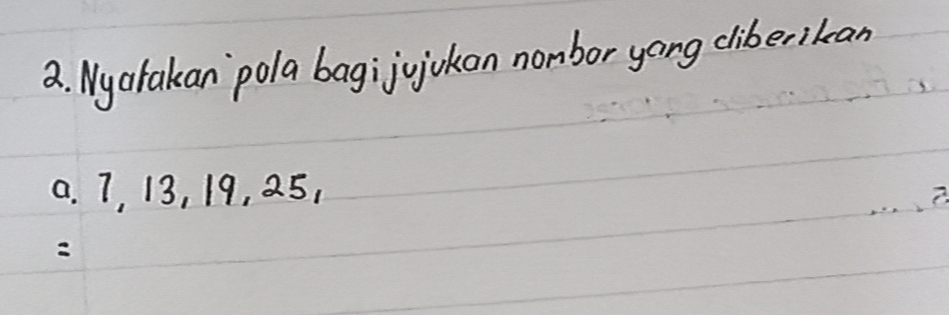 2. Nyatakan pola bagi jujukan nombor yang diberikan
a. 7, 13, 19, 25,
=